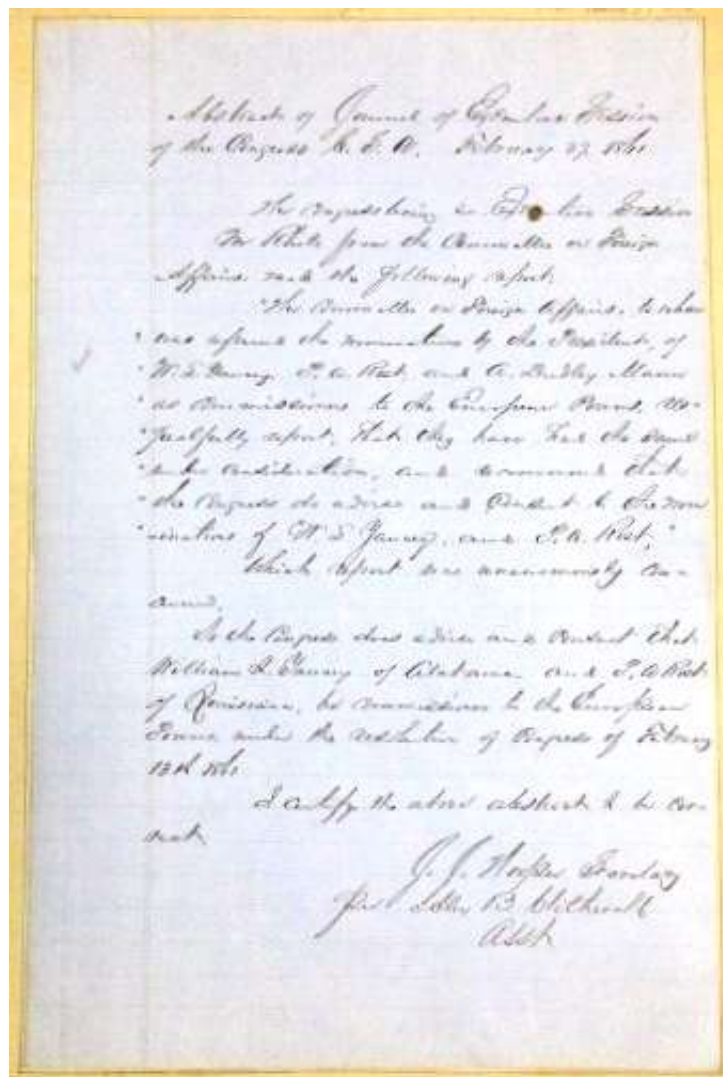 Abstract of Journal of Executive Session
of the Congress C. S. A. February 27, 1861
The Congress being in Executive Session
Mr Rhett from the Committee on Foreign
Affairs made the following report.
"The Committee on Foreign Affairs, to whom
" was referred the nominations by the President, of
" W. L. Yancey, P. A. Rost, and A. Dudley Mann
" as Commissioners to the European Powers, res-
" pectfully report, that they have had the same
" under consideration, and recommend that
" the Congress do advise and consent to the nom
" inations of W. L. Yancey, and P. A. Rost."
Which report was unanimously con-
curred.
So the Congress does advise and consent that
William L. Yancey of Alabama and P. A. Rost
of Louisiana, be commissioners to the European
Powers under the resolution of Congress of February
13th 1861
I certify the above abstract to be cor-
rect
J. J. Hooper Secretary
per B.
Asst